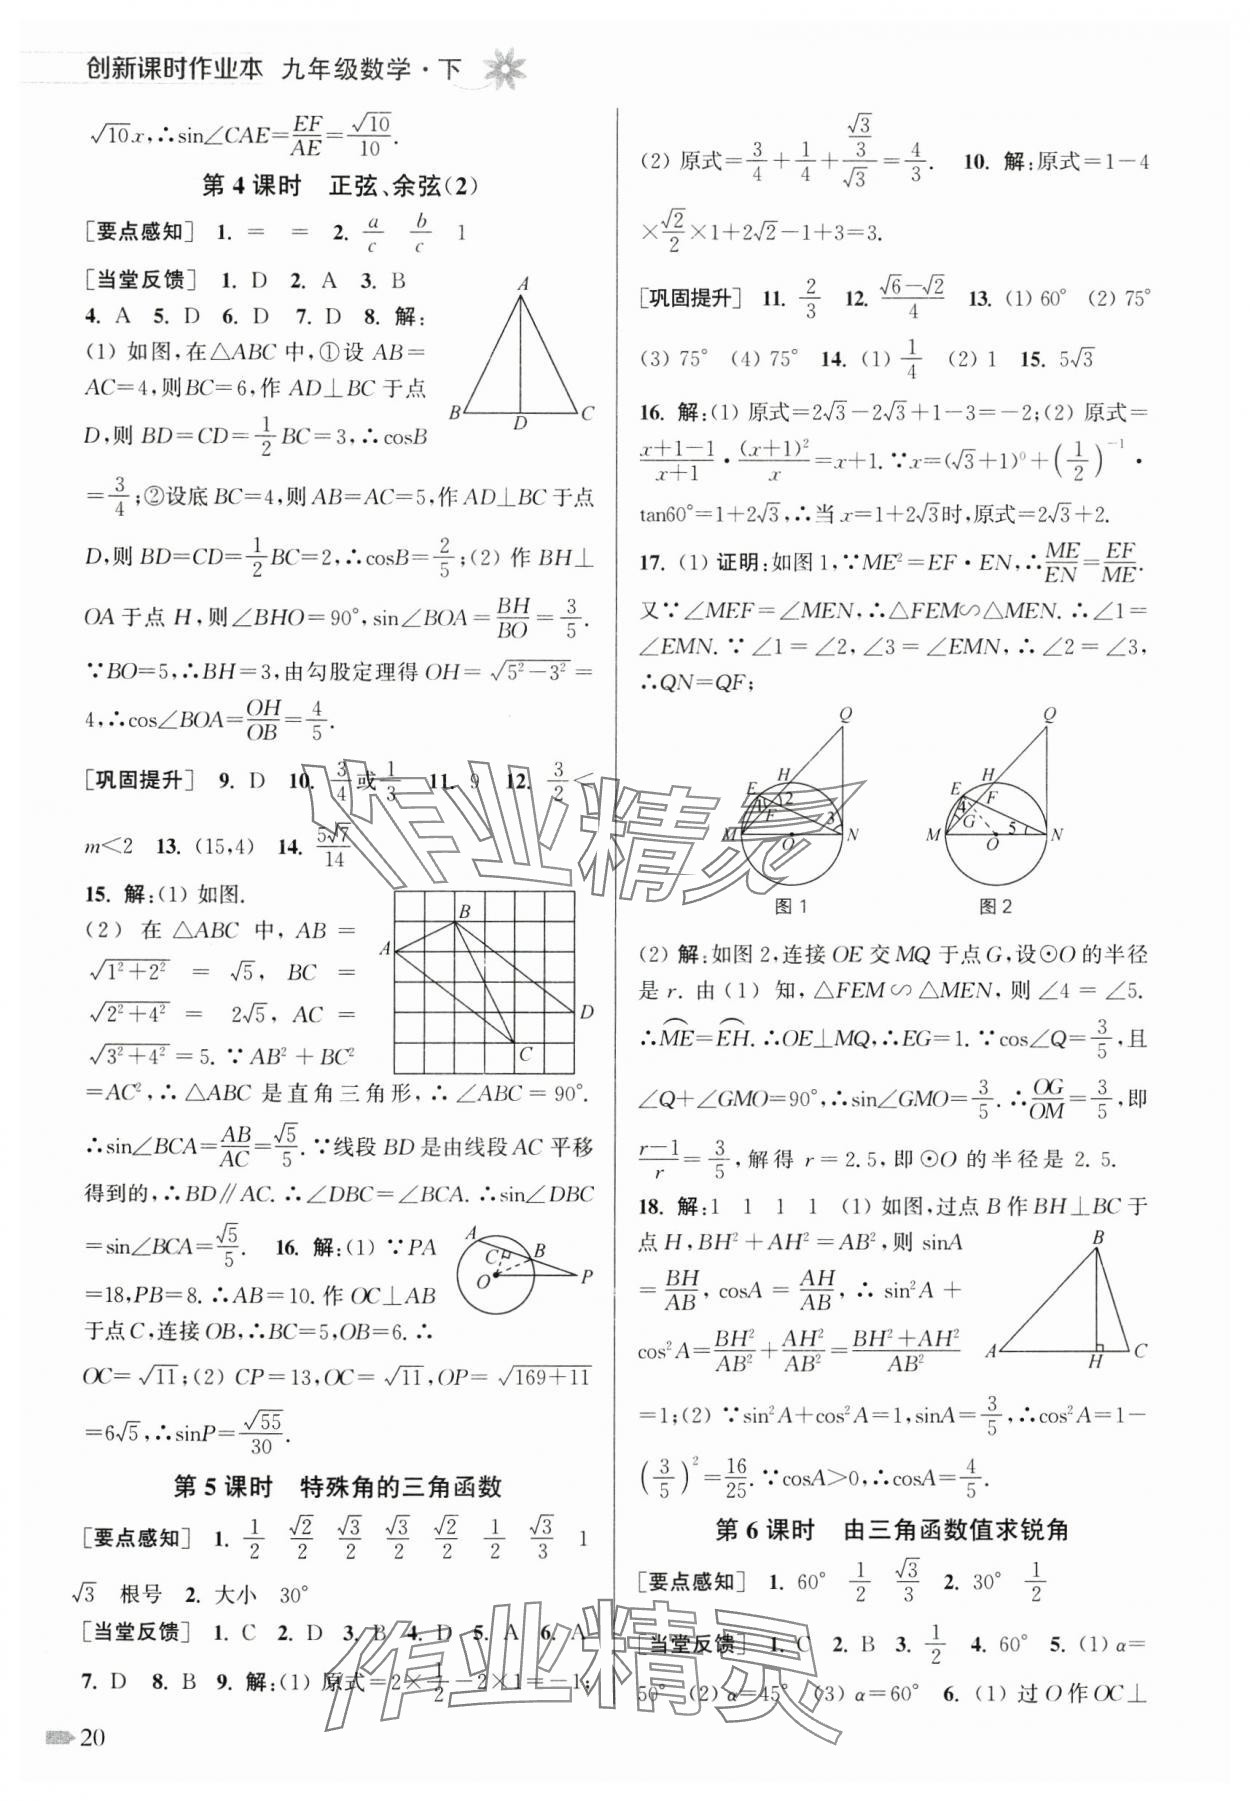 创新课时作业本 九年级数学·下
√10x,∴sin∠CAE=EF/AE=√10/10.
第4课时 正弦、余弦(2)
[要点感知] 1. = = 2. a/c b/c 1
[当堂反馈] 1. D 2. A 3. B
4. A 5. D 6. D 7. D 8. 解:
(1) 如图,在△ABC中,①设AB=
AC=4,则BC=6,作AD⊥BC于点
D,则BD=CD=1/2BC=3,∴cosB
=3/4;②设底BC=4,则AB=AC=5,作AD⊥BC于点
D,则BD=CD=1/2BC=2,∴cosB=2/5;(2) 作BH⊥
OA于点H,则∠BHO=90°,sin∠BOA=BH/BO=3/5.
∵BO=5,∴BH=3,由勾股定理得OH=√(5²-3²)=
4,∴cos∠BOA=OH/OB=4/5.
A
B
D
C
[巩固提升] 9. D 10. 3/4或1/3 11. 9 12. 3/2<
m<2 13. (15,4) 14. 5√7/14
15. 解:(1) 如图.
(2) 在△ABC中,AB=
√(1²+2²) = √5,BC=
√(2²+4²) = 2√5,AC=
√(3²+4²)=5. ∵AB²+BC²
=AC²,∴△ABC是直角三角形,∴∠ABC=90°.
∴sin∠BCA=AB/AC=√5/5. ∵线段BD是由线段AC平移
得到的,∴BD∥AC. ∴∠DBC=∠BCA. ∴sin∠DBC
=sin∠BCA=√5/5. 16. 解:(1) ∵PA
=18,PB=8. ∴AB=10. 作OC⊥AB
于点C,连接OB,∴BC=5,OB=6. ∴
OC=√11;(2) CP=13,OC=√11,OP=√(169+11)
=6√5,∴sinP=√55/30.
A
B
D
C
A
C
B
O
P
第5课时 特殊角的三角函数
[要点感知] 1. 1/2 √2/2 √3/2 √3/2 √2/2 1/2 √3/3 1
√3 根号 2. 大小 30°
[当堂反馈] 1. C 2. D 3. B 4. D 5. A 6. A
7. D 8. B 9. 解:(1) 原式=2×1/2-2×1=-1;
20
(2) 原式=3/4+1/4+(√3/3)/√3=4/3. 10. 解:原式=1-4
×√2/2×1+2√2-1+3=3.
[巩固提升] 11. 2/3 12. (√6-√2)/4 13. (1) 60° (2) 75°
(3) 75° (4) 75° 14. (1) 1/4 (2) 1 15. 5√3
16. 解:(1) 原式=2√3-2√3+1-3=-2;(2) 原式=
(x+1-1)/(x+1)·(x+1)²/x=x+1. ∵x=(√3+1)⁰+(1/2)⁻¹·
tan60°=1+2√3,∴当x=1+2√3时,原式=2√3+2.
17. (1) 证明:如图1,∵ME²=EF·EN,∴ME/EN=EF/ME.
又∵∠MEF=∠MEN,∴△FEM∽△MEN. ∴∠1=
∠EMN. ∵∠1=∠2,∠3=∠EMN,∴∠2=∠3,
∴QN=QF;
Q
H
E
1
2
F
3
M
O
N
图1
Q
H
E
4
F
G
5
M
O
N
图2
(2) 解:如图2,连接OE交MQ于点G,设⊙O的半径
是r. 由(1)知,△FEM∽△MEN,则∠4=∠5.
∴⌒ME=⌒EH. ∴OE⊥MQ,∴EG=1. ∵cos∠Q=3/5,且
∠Q+∠GMO=90°,∴sin∠GMO=3/5. ∴OG/OM=3/5,即
(r-1)/r=3/5,解得r=2.5,即⊙O的半径是2.5.
18. 解:1 1 1 1 (1) 如图,过点B作BH⊥BC于
点H,BH²+AH²=AB²,则sinA
=BH/AB,cosA=AH/AB,∴sin²A+
cos²A=BH²/AB²+AH²/AB²=(BH²+AH²)/AB²
=1;(2) ∵sin²A+cos²A=1,sinA=3/5,∴cos²A=1-
(3/5)²=16/25. ∵cosA>0,∴cosA=4/5.
B
A
H
C
第6课时 由三角函数值求锐角
[要点感知] 1. 60° 1/2 √3/3 2. 30° 1/2
[当堂反馈] 1. C 2. B 3. 1/2 4. 60° 5. (1) α=
50° (2) α=45° (3) α=60° 6. (1) 过O作OC⊥
作业精灵
作业精灵